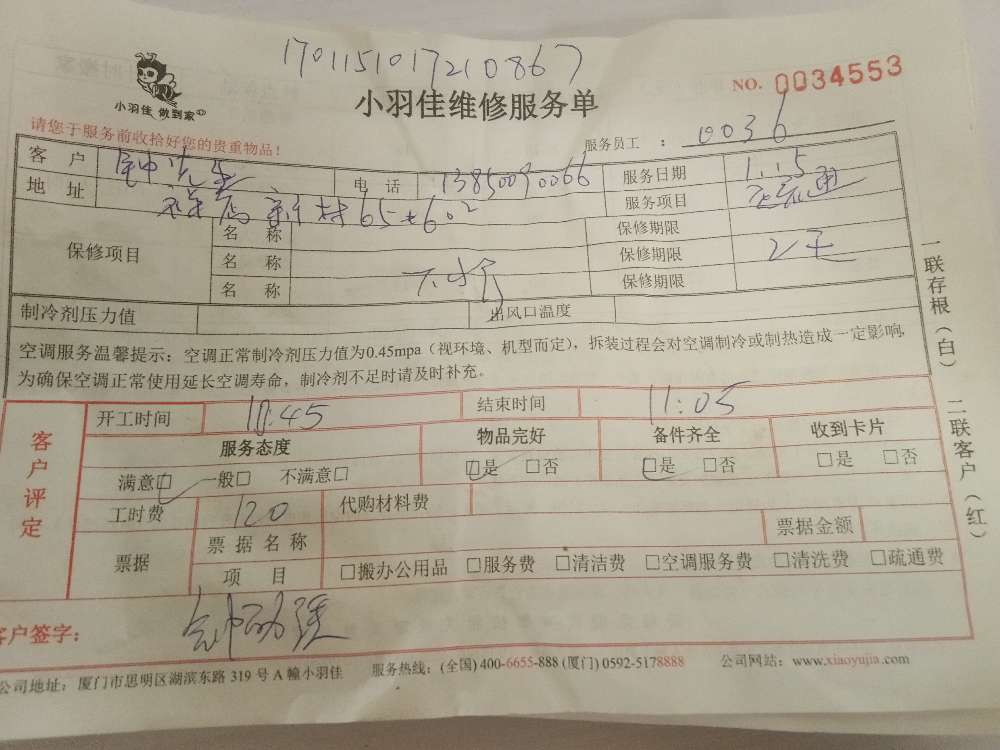 1701151017210867
NO. 0034553
小羽佳 做到家
小羽佳维修服务单
请您于服务前收拾好您的贵重物品！
服务员工 ： 0036
客 户 钟先生 电 话 13850090066 服务日期 1.15
地 址 新村65-602 服务项目
保修项目 名 称 保修期限
名 称 下水 保修期限 2
名 称 保修期限
制冷剂压力值 出风口温度
空调服务温馨提示：空调正常制冷剂压力值为0.45mpa（视环境、机型而定），拆装过程会对空调制冷或制热造成一定影响，
为确保空调正常使用延长空调寿命，制冷剂不足时请及时补充。
客户评定
开工时间 10:45 结束时间 11:05
服务态度 物品完好 备件齐全 收到卡片
满意□ 一般□ 不满意□ □是 □否 □是 □否 □是 □否
工时费 120 代购材料费
票据 票据名称 票据金额
项 目 □搬办公用品 □服务费 □清洁费 □空调服务费 □清洗费 □疏通费
客户签字：
公司地址：厦门市思明区湖滨东路 319 号 A 幢小羽佳 服务热线：(全国) 400-6655-888 (厦门) 0592-5178888 公司网站：www.xiaoyujia.com
一联存根（白） 二联客户（红）